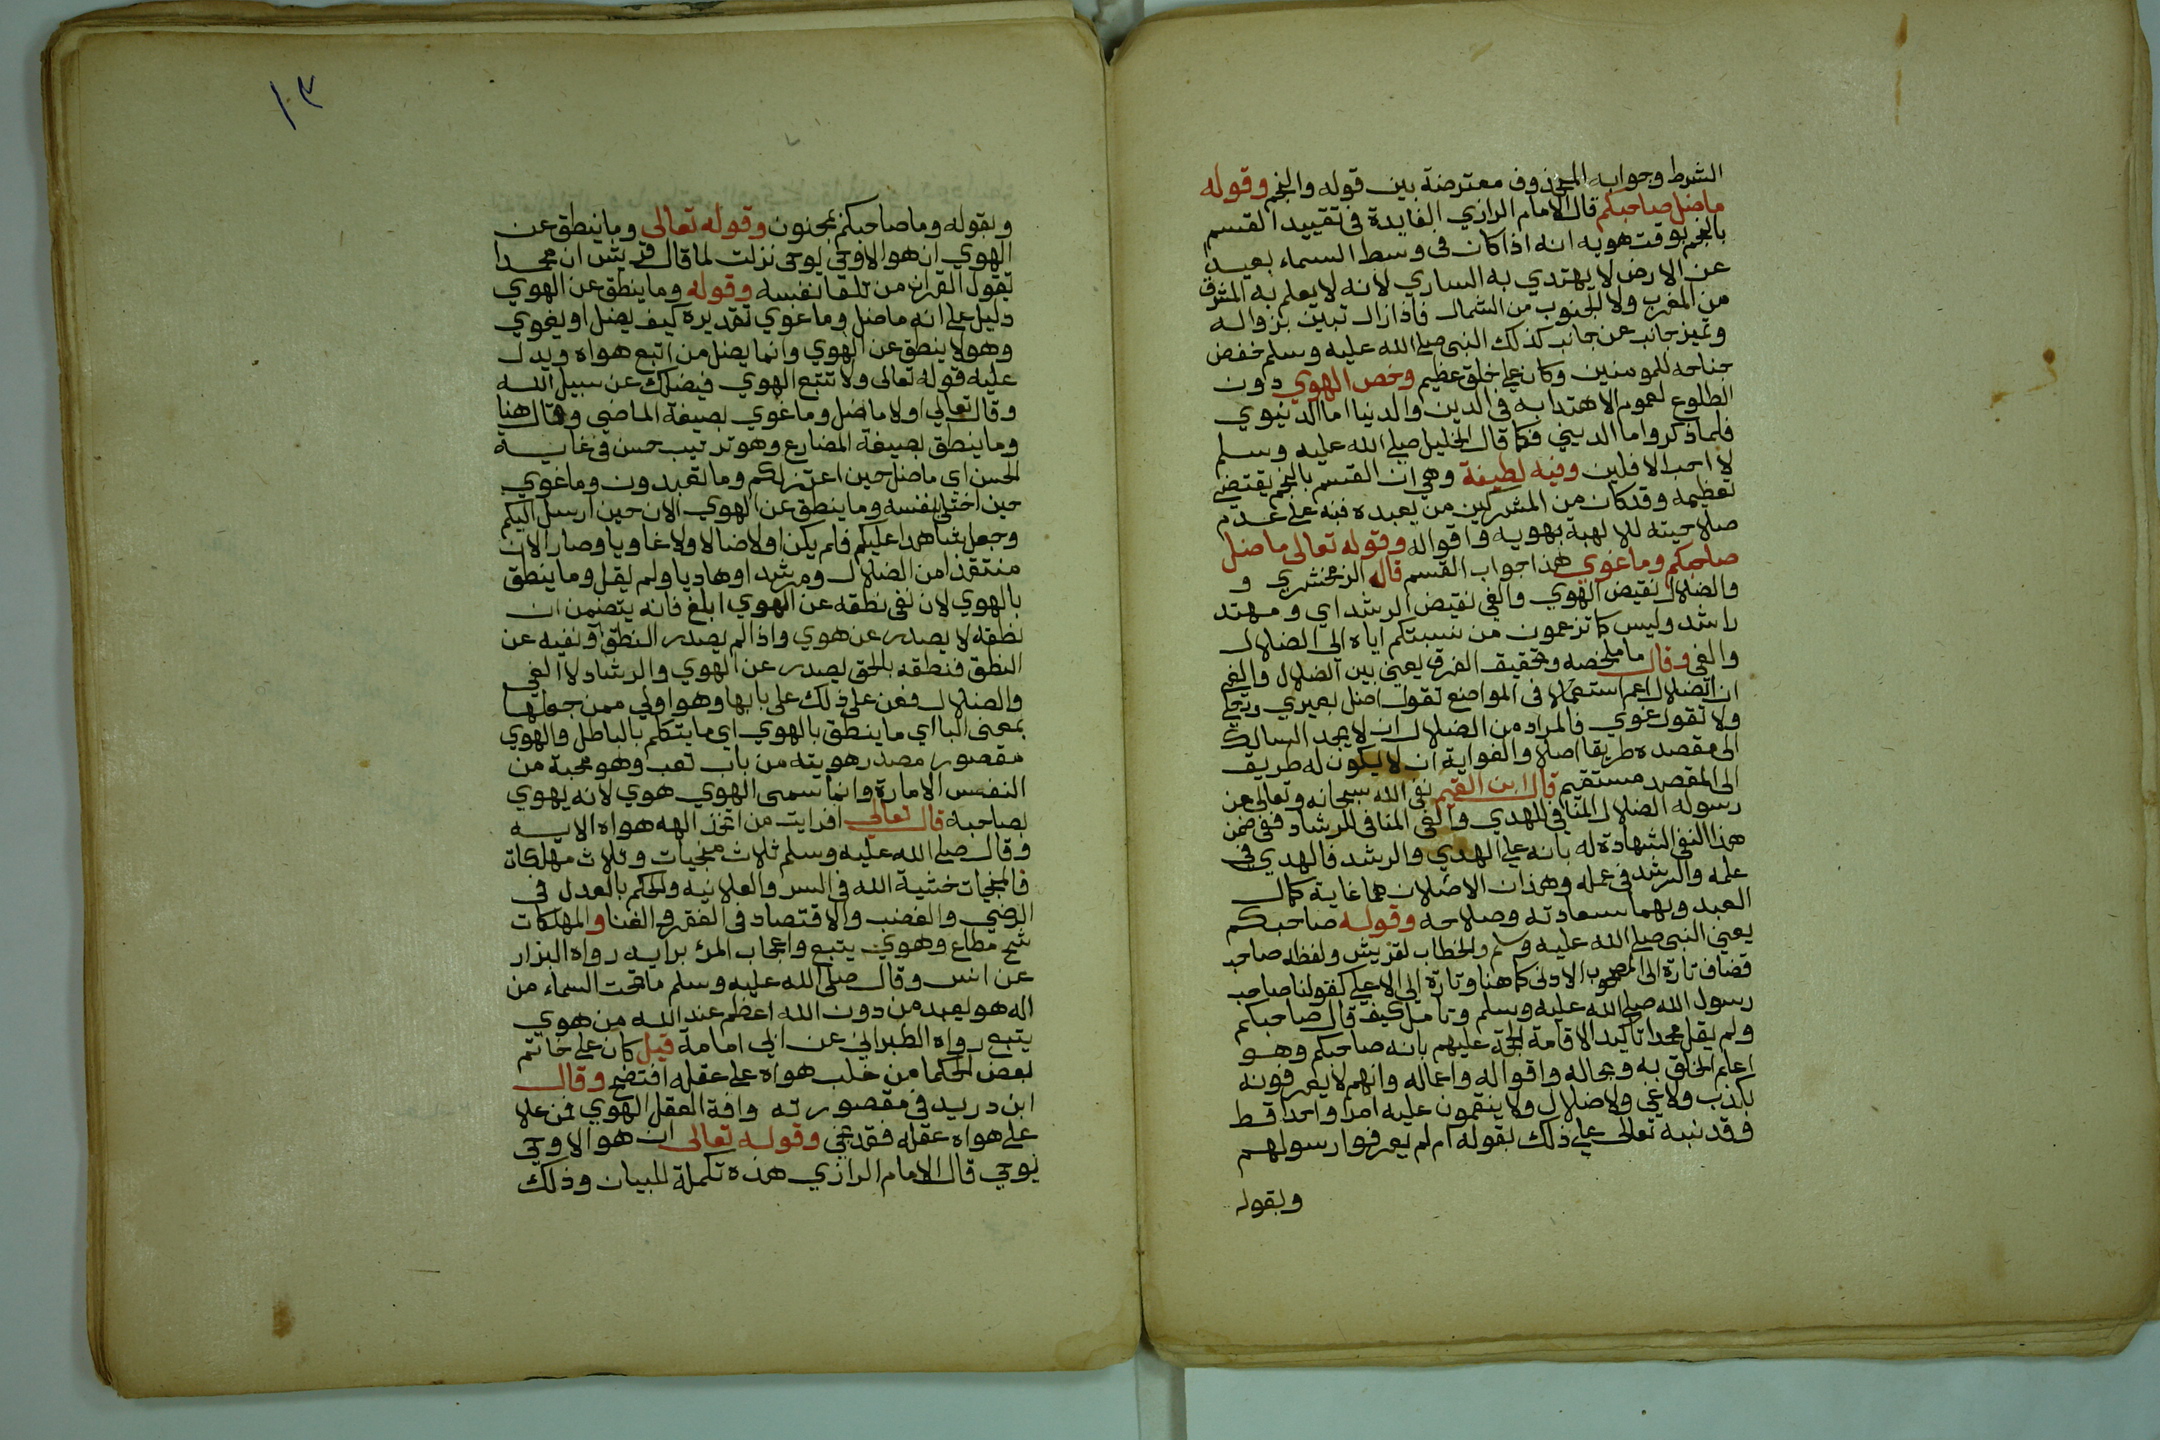 الشرط وجوابه المحذوف معترضة بين قوله والنجم وقوله
ماضل صاحبكم قال الامام الرازي الفايدة في تقييد القسم
بالنجم بوقت هويه انه اذا كان في وسط السماء بعيدا
عن الارض لا يهتدي به الساري لانه لا يعلم به المشرق
من المغرب ولا الجنوب من الشمال فاذا زال تبين بزواله
وتميز جانب عن جانب كذلك النبي صلى الله عليه وسلم خفض
جناحه للمومنين وكان على خلق عظيم وخص الهوي دون
الطلوع لعموم الاهتدا به في الدين والدنيا اما الدنيوي
فلما ذكر واما الديني فكما قال الخليل صلى الله عليه وسلم
لا احب الافلين وفيه لطيفة وهي ان القسم بالنجم يقتضي
تعظيمه وقد كان من المشركين من يعبده فنبه على عدم
صلاحيته للالهية بهويه وافواله وقوله تعالى ماضل
صاحبكم وما غوي هذا جواب القسم قاله الزمخشري و
والضلال نقيض الهوي والغي نقيض الرشد اي ومهتد
راشد وليس كما تزعمون من نسبتكم اياه الى الضلال
والغي وقال ما ملخصه وتحقيق الفرق يعني بين الضلال والغي
ان الضلال اعم استعمالا في المواضع تقول اضل بعيري ورحلي
ولا تقول غوي فالمراد من الضلال ان لا يجد السالك
الى مقصده طريقا اصلا والغواية ان لا يكون له طريق
الى المقصد مستقيم قال ابن القيم نفى الله سبحانه وتعالى عن
رسوله الضلال المنافي للهدي والغي المنافي للرشاد ففي ضمن
هذا النفي الشهادة له بانه على الهدي والرشد فالهدي في
علمه والرشد في عمله وهذان الاصلان هما غاية كمال
العبد وبهما سعادته وصلاحه وقوله صاحبكم
يعني النبي صلى الله عليه وسلم والخطاب لقريش ولفظه صاحب
تضاف تارة الى المصحوب الادنى كما هنا وتارة الى الاعلى كقولنا صاحب
رسول الله صلى الله عليه وسلم وتامل كيف قال صاحبكم
ولم يقل محمدا تاكيدا لاقامة الحجة عليهم بانه صاحبكم وهو
اعلم الخلق به وبحاله واقواله واعماله وانهم لا يعرفونه
بكذب ولا غي ولا ضلال ولا ينقمون عليه امرا واحدا قط
وقد نبه تعالى على ذلك بقوله ام لم يعرفوا رسولهم
وبقوله
١٣
وبقوله وما صاحبكم بمجنون وقوله تعالى وما ينطق عن
الهوي ان هو الا وحي يوحى نزلت لما قال قريش ان محمدا
تقول القران من تلقا نفسه وقوله وما ينطق عن الهوي
دليل على انه ماضل وما غوي تقديره كيف يضل او يغوي
وهو لا ينطق عن الهوي وانما يضل من اتبع هواه ويدل
عليه قوله تعالى ولا تتبع الهوي فيضلك عن سبيل الله
وقال تعالى اولا ماضل وما غوي بصيغة الماضي وقال هنا
وما ينطق بصيغة المضارع وهو ترتيب حسن في غاية
الحسن اي ماضل حين اعتزلكم وما تعبدون وما غوي
حين اختلى بنفسه وما ينطق عن الهوي الان حين ارسل اليكم
وجعل شاهدا عليكم فلم يكن اولا ضالا ولا غاويا وصار الان
منتقذا من الضلال ومرشدا وهاديا ولم يقل وما ينطق
بالهوي لان نفي نطقه عن الهوي ابلغ فانه يتضمن ان
نطقه لا يصدر عن هوي واذا لم يصدر النطق ونفيه عن
النطق فنطقه بالحق يصدر عن الهوي والرشاد لا الغي
والضلال فعن على ذلك على بابها وهو اولي ممن جعلها
بمعنى البا اي ما ينطق بالهوي اي ما يتكلم بالباطل والهوي
مقصور مصدر هويته من باب تعب وهو محبة من
النفس الامارة وانما سمى الهوي هوي لانه يهوي
بصاحبه قال تعالى افرايت من اتخذ الهه هواه الاية
وقال صلى الله عليه وسلم ثلاث منجيات وثلاث مهلكات
فالمنجيات خشية الله في السر والعلانيه والحكم بالعدل في
الرضي والغضب والاقتصاد في الفقر والغنا والمهلكات
شح مطاع وهوي يتبع واعجاب المرء برايه رواه البزار
عن انس وقال صلى الله عليه وسلم ما تحت السماء من
اله هو يعبد من دون الله اعظم عند الله من هوي
يتبع رواه الطبراني عن ابي امامة قيل كان على خاتم
بعض الحكما من غلب هواه على عقله افتضح وقال
ابن دريد في مقصورته وافة العقل الهوي فمن علا
على هواه عقله فقد نجي وقوله تعالى ان هو الا وحي
يوحي قال الامام الرازي هذه تكملة للبيان وذلك